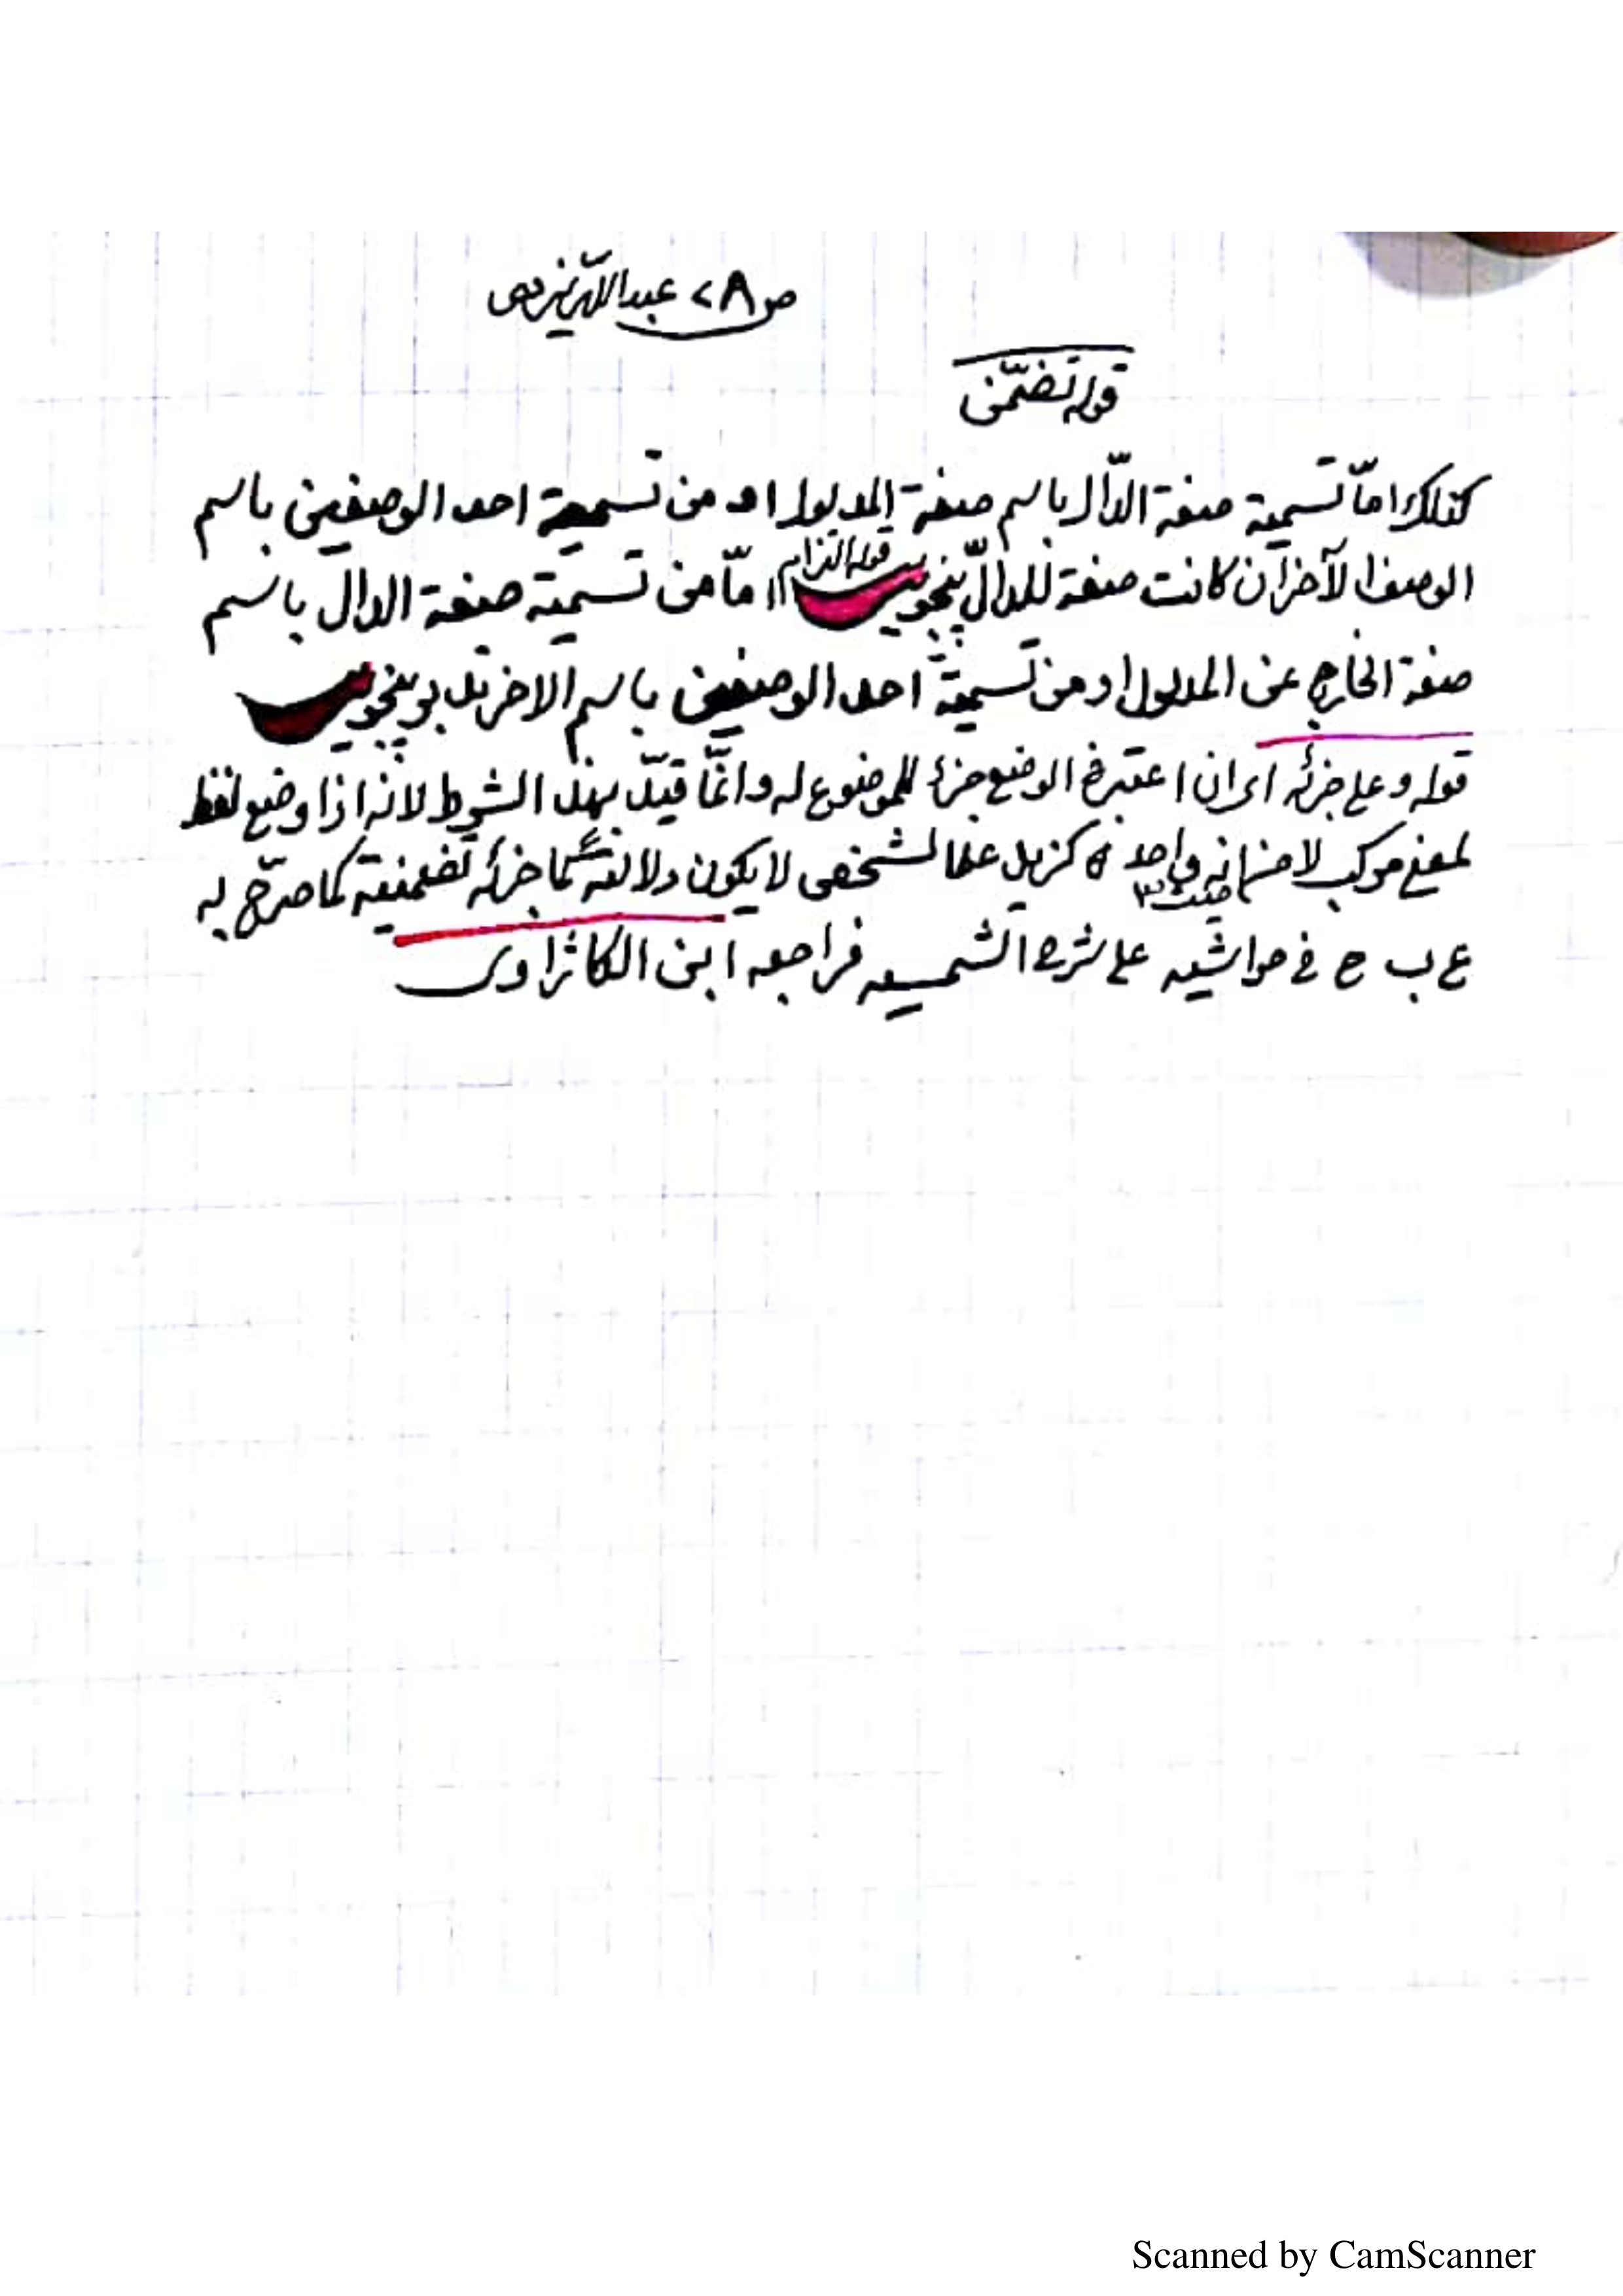 ص ٢٨ عبدالله يزدى
قوله تضمّن
كذلك امّا تسمية صفة الدّال باسم صفة المدلول او من تسمية احد الوصفين باسم
الوصف الآخر ان كانت صفة للدالّ پنجوينى قوله التزام امّا من تسمية صفة الدالّ باسم
صفة الخارج عن المدلول او من تسمية احد الوصفين باسم الاخر پنجوينى
قوله وعلى جزئه اى ان اعتبر فى الوضع جزء للموضوع له وانّما قيّد بهذا الشرط لانه اذا وضع لفظ
لمعنى مركب لا من حيث انه واحد كزيد علما لشخص لا يكون دلالته على جزئه تضمنية كما صرّح به
ع ب ح فى حواشيه على شرح الشمسيه فراجعه ابن الكاژاوى
Scanned by CamScanner